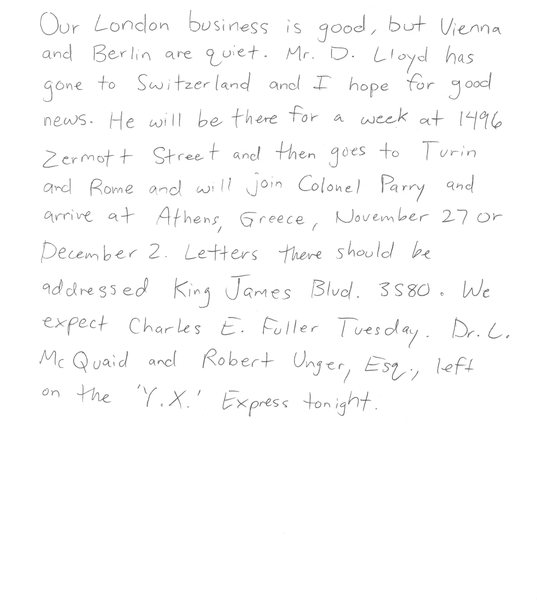 Our London business is good, but Vienna
and Berlin are quiet. Mr. D. Lloyd has
gone to Switzerland and I hope for good
news. He will be there for a week at 1496
Zermott Street and then goes to Turin
and Rome and will join Colonel Parry and
arrive at Athens, Greece, November 27 or
December 2. Letters there should be
addressed King James Blvd. 3580. We
expect Charles E. Fuller Tuesday. Dr. L.
McQuaid and Robert Unger, Esq., left
on the 'Y.X.' Express tonight.